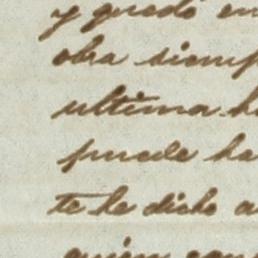 y quedó en
obra siemp
ultima h
puede ha
te he dicho a
quien con